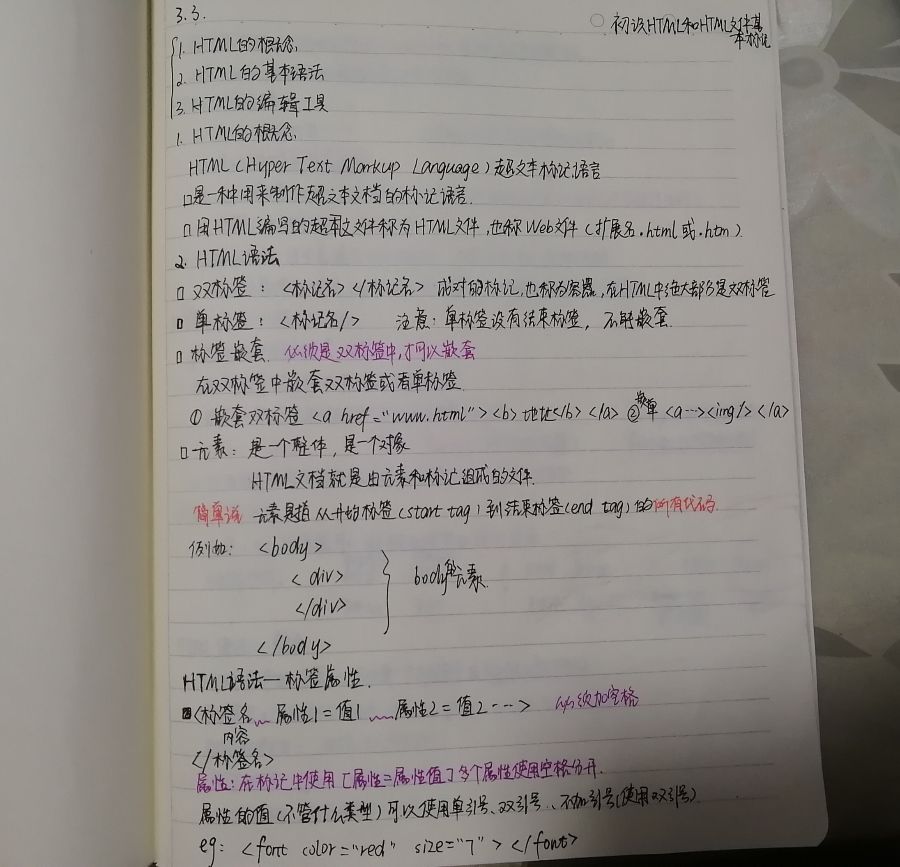 3.3.
初识HTML和HTML文件基
本标记
1. HTML的概念.
2. HTML的基本语法
3. HTML的编辑工具
1. HTML的概念.
HTML (Hyper Text Markup Language) 超文本标记语言
□是一种用来制作超文本文档的标记语言.
□用HTML编写的超文本文件称为HTML文件,也称Web文件 (扩展名.html或.htm)
2. HTML语法
□ 双标签: <标记名></标记名> 成对的标记,也称为容器,在HTML中绝大部分是双标签
□ 单标签: <标记名/> 注意: 单标签没有结束标签, 不能嵌套.
□ 标签嵌套. 必须是双标签中,才可以嵌套
在双标签中嵌套双标签或者单标签.
① 嵌套双标签 <a href="www.html"><b>地址</b></a> ②嵌单 <a…><img/></a>
□元素: 是一个整体, 是一个对象
HTML文档就是由元素和标记组成的文件.
简单说 元素是指从开始标签(start tag)到结束标签(end tag)的所有代码.
例如: <body>
<div>
</div>
</body>
body的元素
HTML语法—标签属性.
<标签名 属性1=值1 属性2=值2…> 必须加空格
内容
</标签名>
属性:在标记中使用[属性=属性值]多个属性使用空格分开.
属性的值(不管什么类型)可以使用单引号、双引号、不加引号(使用双引号).
eg: <font color="red" size="7"></font>